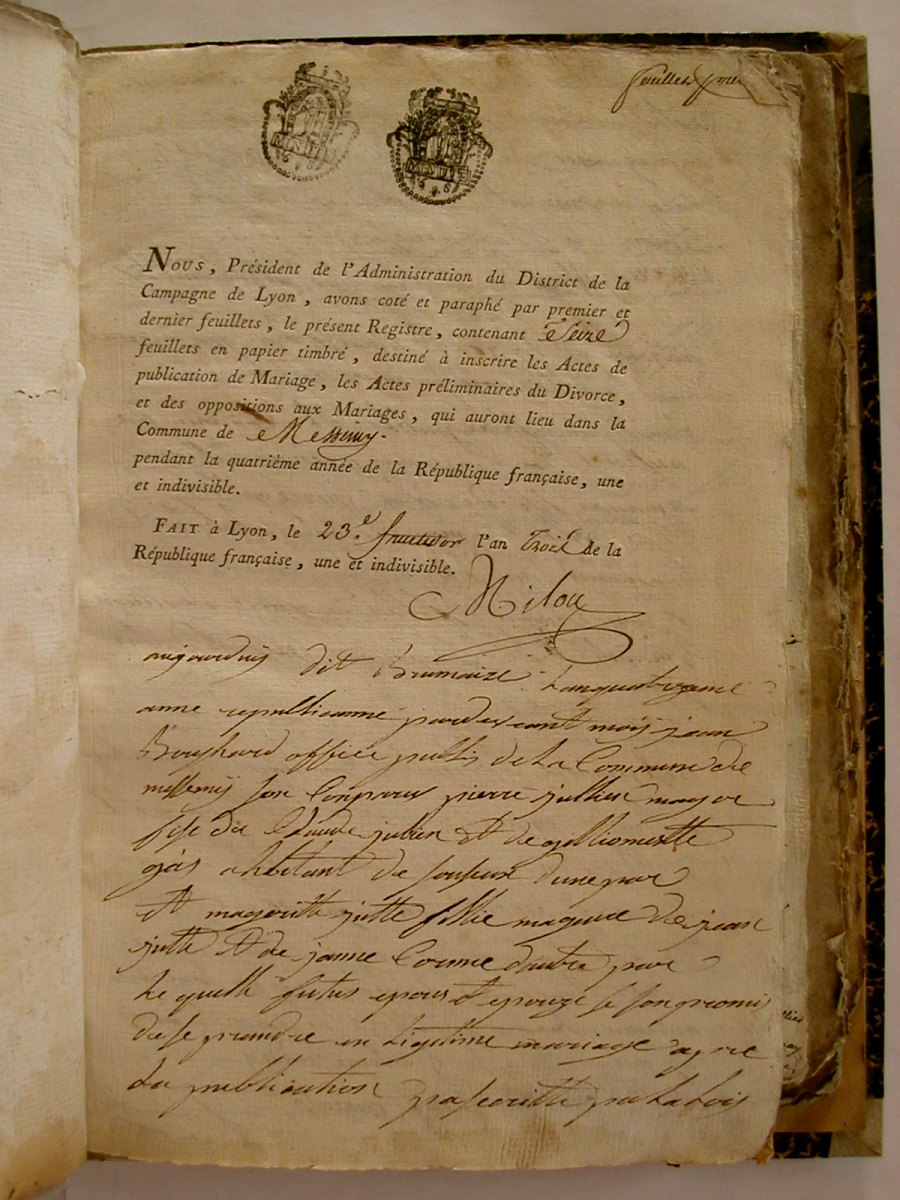 feuillet
Nous, Président de l'Administration du District de la
Campagne de Lyon, avons coté et paraphé par premier et
dernier feuillets, le présent Registre, contenant Seize
feuillets en papier timbré, destiné à inscrire les Actes de
publication de Mariage, les Actes préliminaires du Divorce,
et des oppositions aux Mariages, qui auront lieu dans la
Commune de Messimy.
pendant la quatrième année de la République française, une
et indivisible.
FAIT à Lyon, le 23.e fructidor l'an Trois de la
République française, une et indivisible.
aujourduy dit Brumaire
anne republicanne pardevant mois jean
office public de la Commune de
messemy son pierre jullien mageur
fise de Claude julien et de
abbitant de d'une par
et magoritte jutte fillie mageure de jean
jutte et de janne d'autre par
le quelle futus epous et epouze se son promis
de se prandre en legitime mariage apre
la publication par la lois